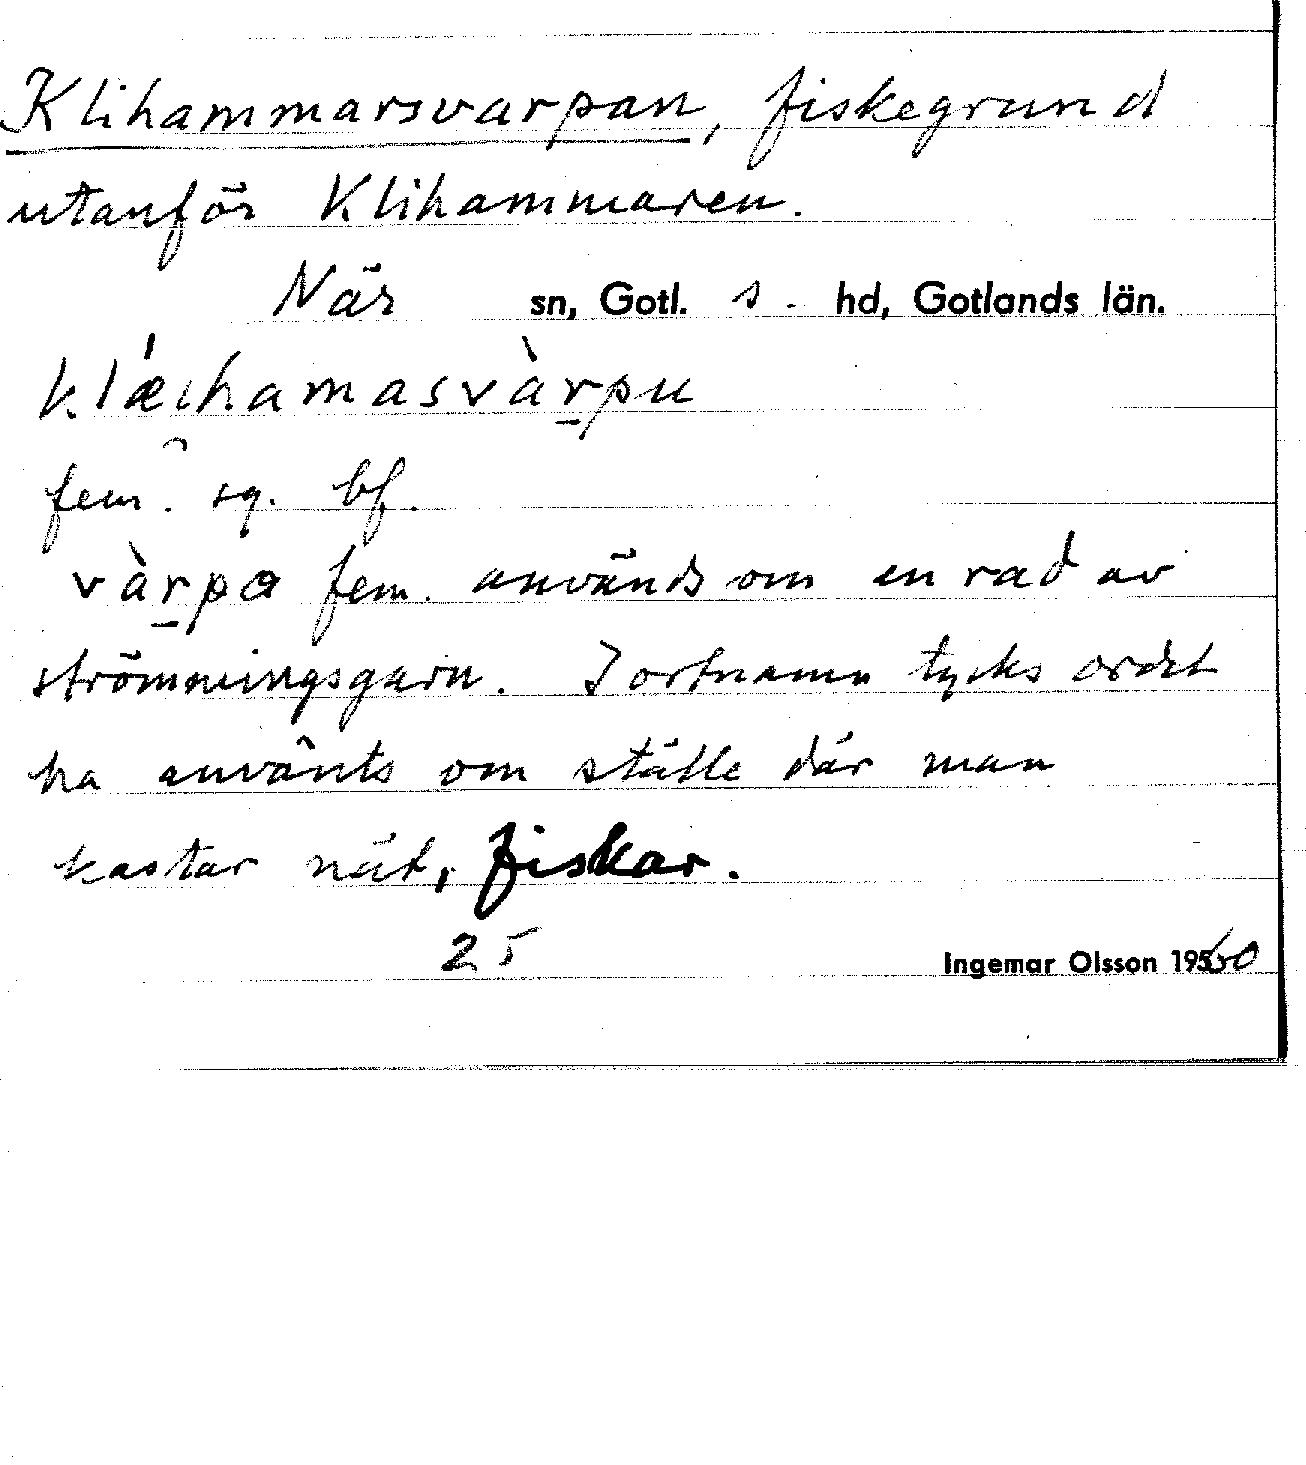 Klihammarsvarpan, fiskegrund
utanför Klihammaren.
När sn, Gotl. s. hd, Gotlands län.
klǽi̯hamasvàr̠pu
fem. sg. bf.
vàr̠pa fem. används om en rad av
strömmingsgarn. I ortnamn tycks ordet
ha använts om ställe där man
kastar nät, fiskar.
25
Ingemar Olsson 1960